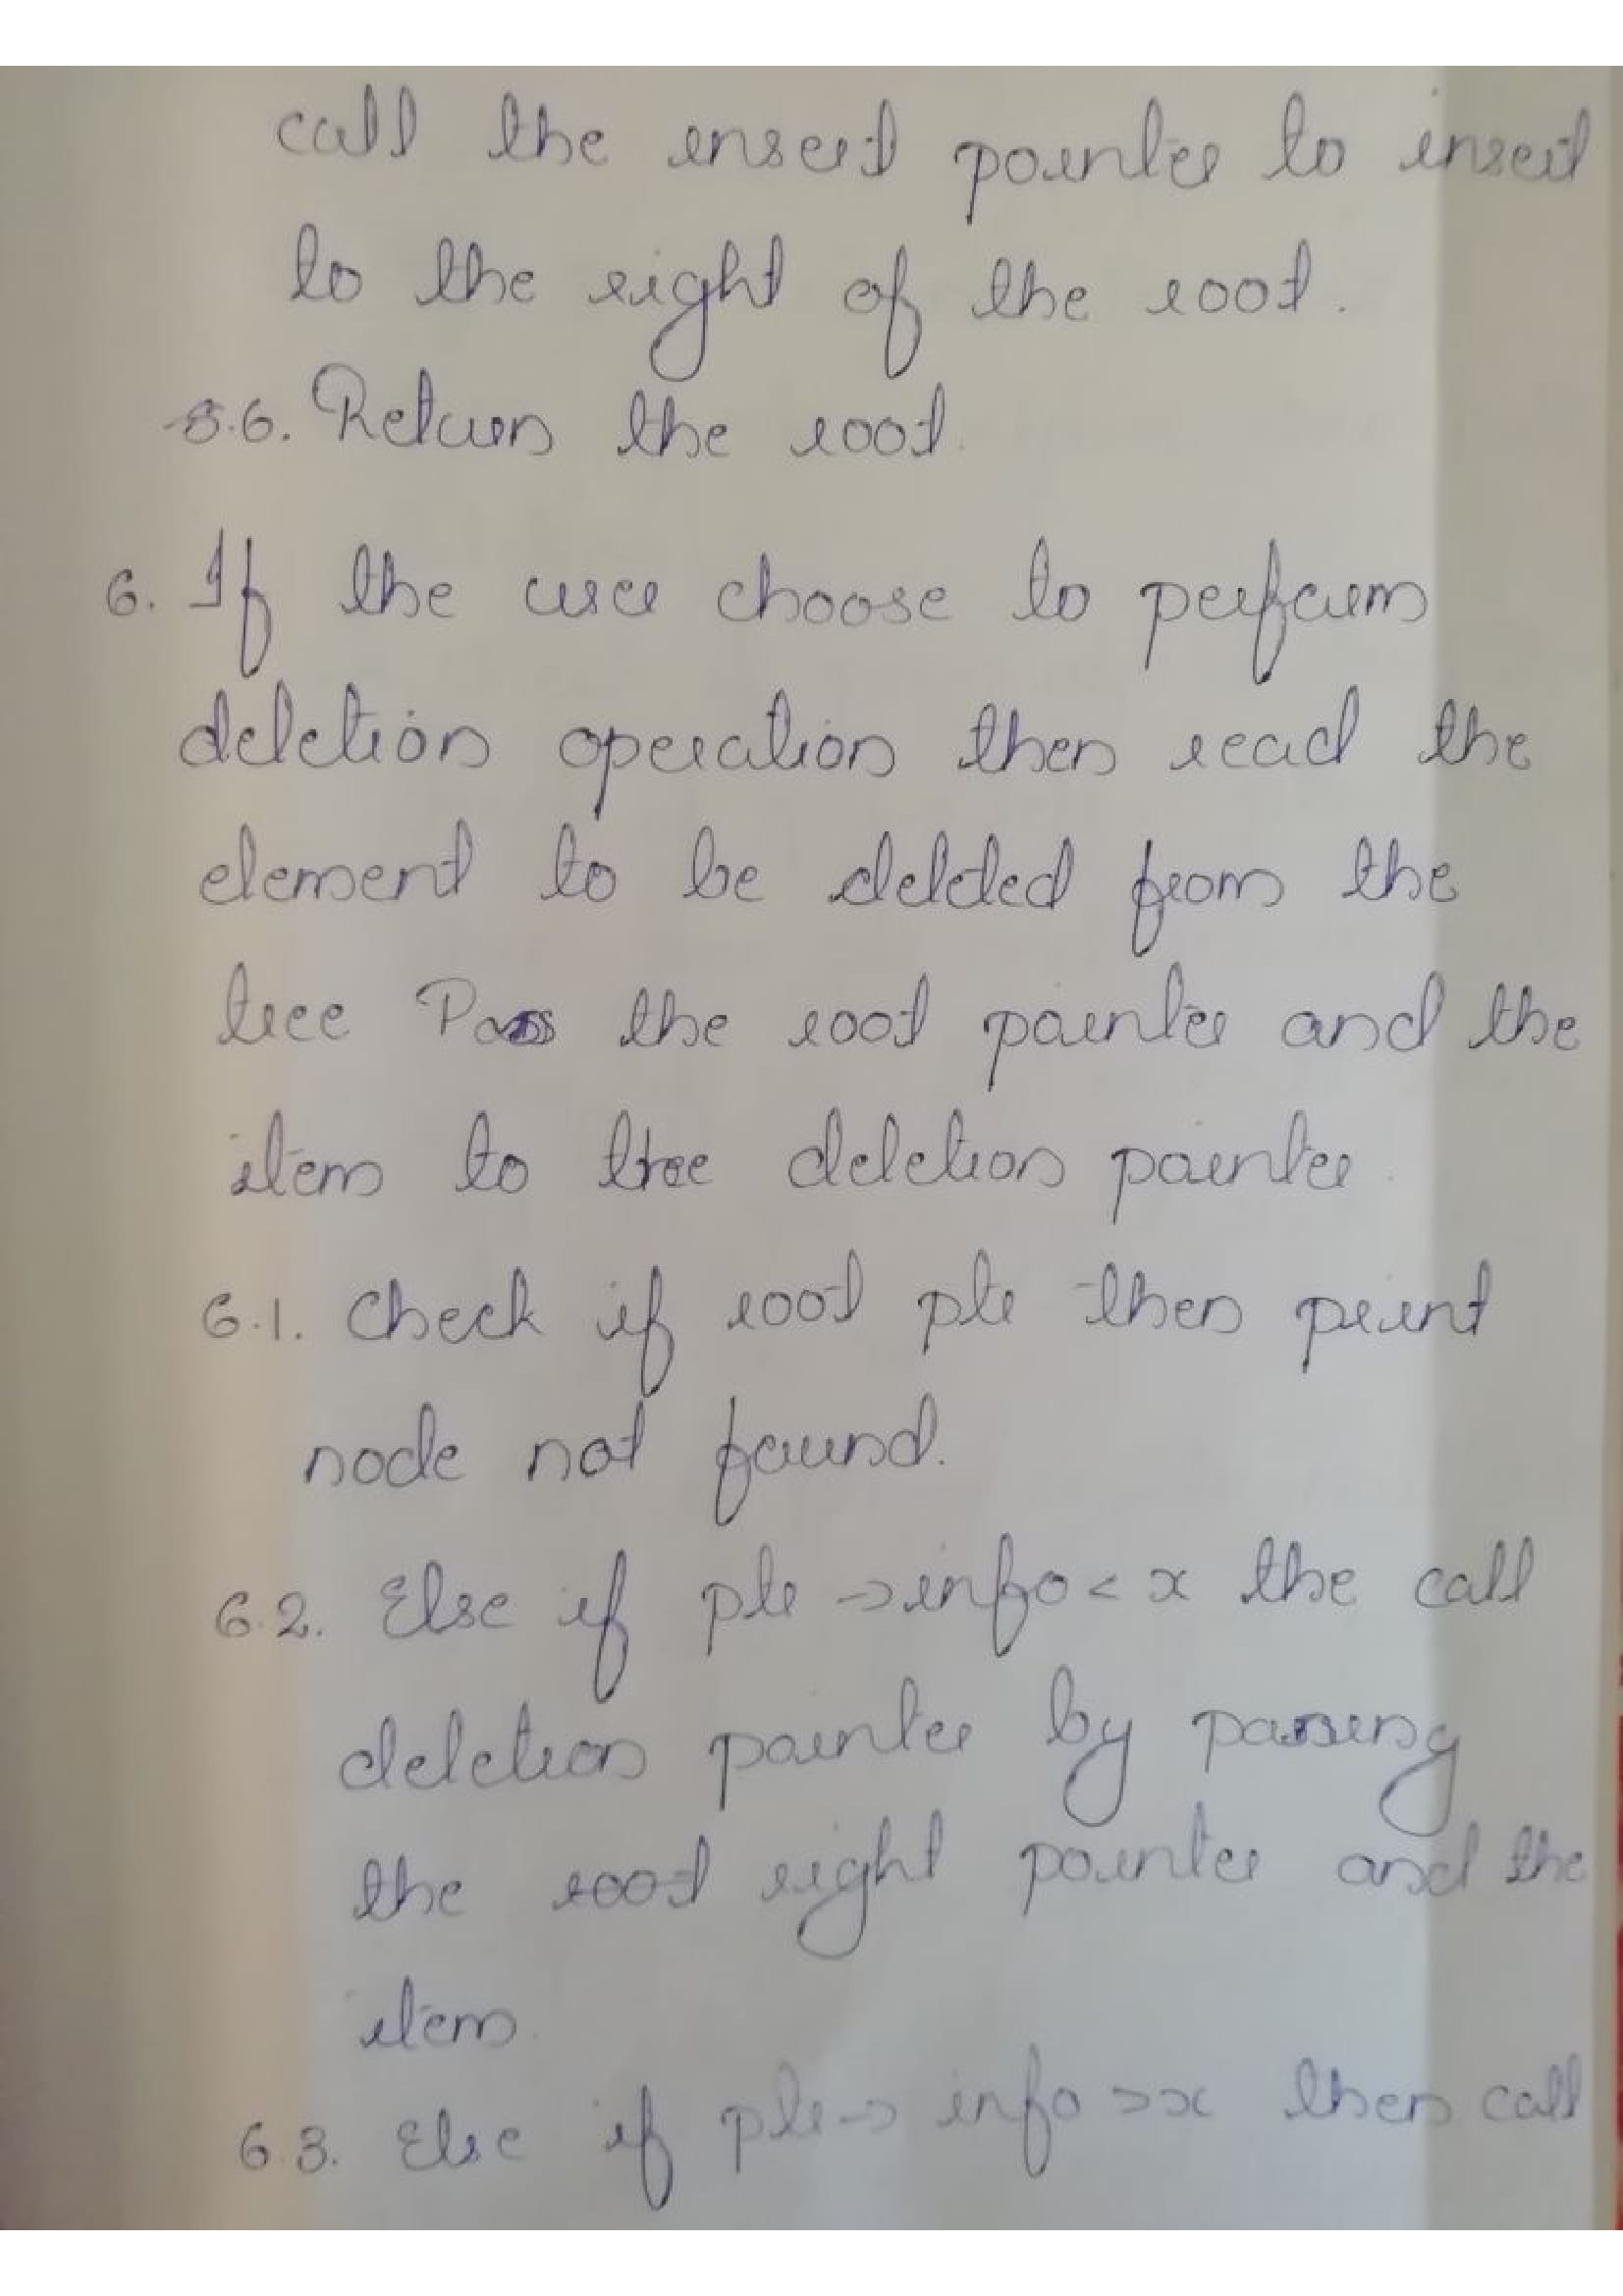 call the insert pointer to insert
to the right of the root.
5.6. Return the root.
6. If the user choose to perform
deletion operation then read the
element to be deleted from the
tree Pass the root pointer and the
item to tree deletion pointer.
6.1. Check if root ptr then print
node not found.
6.2. Else if ptr → info < x the call
deletion pointer by passing
the root right pointer and the
item.
6.3. Else if ptr → info > x then call